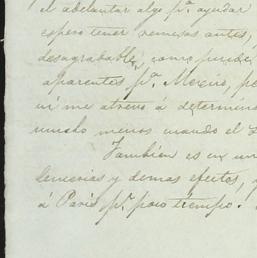 el adelantar algo pª ayudar
espero tener remesas antes,
desagradable, como puede
aparentes pª
ni me atrevo á determina
mucho menos cuando el
Tambien es en un
y demas efectos,
á Paris pr poco tiempo.